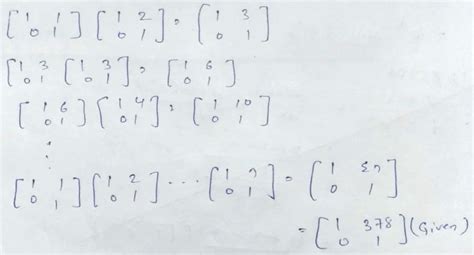 [1 1; 0 1] [1 2; 0 1] = [1 3; 0 1]
[1 3; 0 1] [1 3; 0 1] = [1 6; 0 1]
[1 6; 0 1] [1 4; 0 1] = [1 10; 0 1]
⋮
[1 1; 0 1] [1 2; 0 1] ⋯ [1 n; 0 1] = [1 Σn; 0 1]
= [1 378; 0 1] (Given)